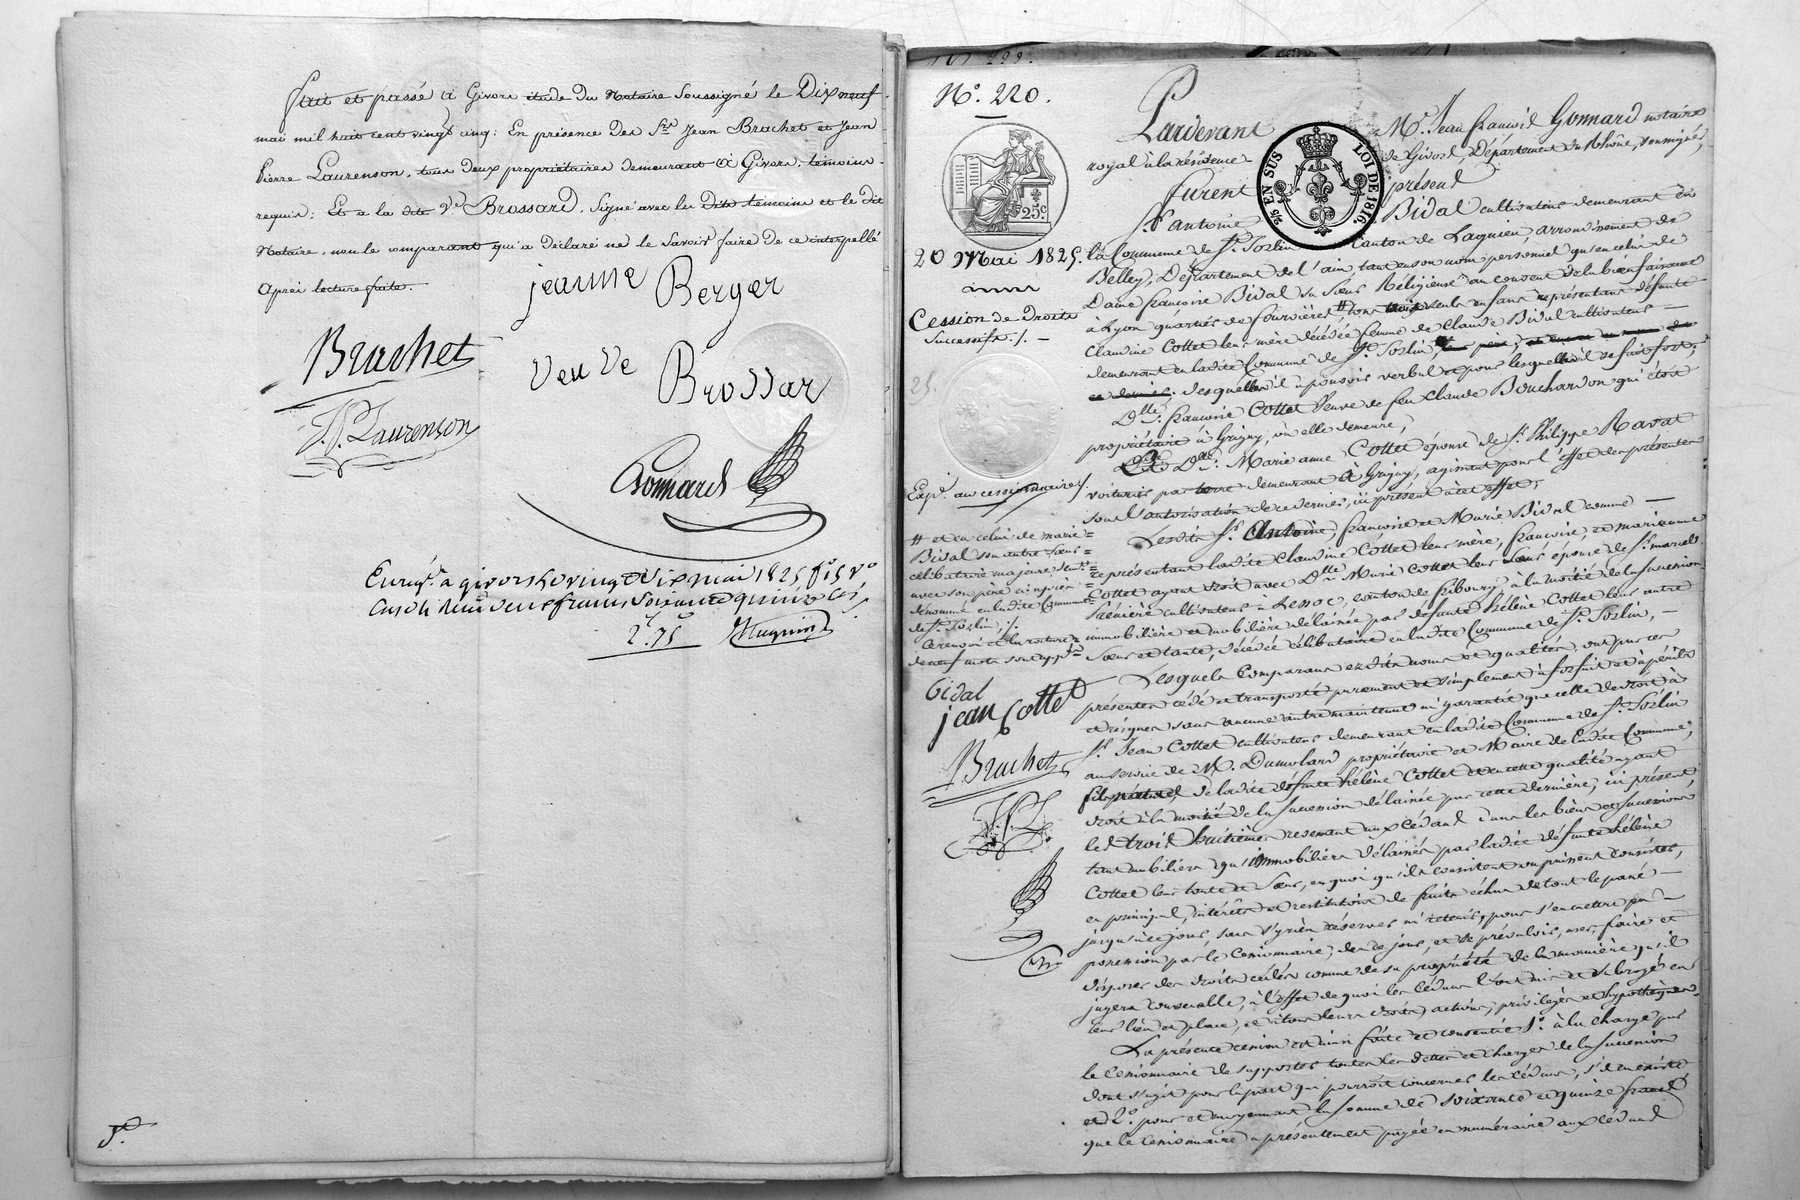 fait et passé à Givors étude du Notaire soussigné le Dix neuf
mai mil huit cent vingt cinq: En présence des Srs Jean Brachet et Jean
Pierre Laurenson, tous deux propriétaires demeurant à Givors, témoins
requis; Et a la dite Ve Brossard, signé avec les dits témoins et le dit
Notaire, non le comparant qui a déclaré ne le savoir faire de ce interpellé
après lecture faite.
jeanne Berger
Brachet
veu ve Brossar
J. P. Laurenson
Gonnard
Enregé à givors le vingt mai 1825 fo 5 vo
Case
deux francs soixante quinze ces
2f. 75c
5e
No. 220.
Pardevant Me. Jean françois Gonnard notaire
royal à la résidence de Givors, Département du Rhône, soussigné,
furent présens
25 EN SUS
LOI DE 1816.
25c
St. antoine Bidal cultivateur demeurant en
20 Mai 1825.
la Commune de St. Sorlin Canton de Lagnieu, arrondissement de
Belley, Département de l'ain, tant en son nom personnel qu'en celui de
Dame françoise Bidal sa sœur Réligieuse au couvent de la bienfaisance
Cession de Droits
Successifs ./. —
à Lyon quartier de fourvières, # tous trois seuls enfans représentans défunte
Claudine Cottet leur mère décédée femme de Claude Bidal cultivateur —
demeurant en ladite Commune de St. Sorlin,
desquelles il a pouvoir verbal et pour lesquelles il se fait fort;
25.
Dlle. françoise Cottet Veuve de feu Claude Bouchardon qui étoit
propriétaire à Grigny, où elle demeure;
Et Dlle. Marie anne Cottet épouse de Sr. Philippe Ravat
Expé. au cessionnaire ./.
voiturier par terre demeurant à Grigny, agissant pour l'effet des présentes
sous l'autorisation de ce dernier, ici présent à cet effet;
Lesdits Sr. Antoine, françoise et Marie Bidal comme —
# et en celui de marie
Bidal son autre sœur
célibataire majeure
avec son père ci après
dénommé en ladite Commune
de St. Sorlin ./.
représentant ladite Claudine Cottet leur mère, françoise, et marianne
Cottet ayant droit avec Dlle Marie Cottet leur sœur épouse de Sr. marcel
cultivateur à Lessoc, canton de fribourg, à la moitié de la succession
immobilière et mobilière délaissée par défunte hélène Cottet leur autre
Sœur et tante, décédée célibataire en ladite Commune de St. Sorlin,
Lesquels Comparans esdits noms et qualités, ont par ces
présentes cédé et transporté purement et simplement à forfait et à périls
et risques sans aucune autre maintenue ni garantie que celle de droit à
Bidal
jean Cottet
Sr. Jean Cottet cultivateur demeurant en ladite Commune de St. Sorlin
au service de M. Dumolard propriétaire et Maire de ladite Commune,
Brachet
fils naturel de ladite défunte hélène Cottet et en cette qualité ayant
droit à la moitié de la succession délaissée par cette dernière, ici présent,
J. P. L.
les trois huitièmes revenant aux Cédans dans les biens et successions
tant mobiliers qu'immobiliers délaissés par ladite défunte hélène
Cottet leur tante et sœur, en quoi qu'ils consistent ou puissent consister,
en principal, intérêts et restitutions de fruits échus de tout le passé —
jusqu'à ce jour, sans s'y rien réserver ni retenir, pour s'en mettre en
possession par le Cessionnaire, dès ce jour, et se prévaloir, user, faire et
disposer des droits cédés comme de sa propriété de la manière qu'il
jugera convenable, à l'effet de quoi les Cédans l'ont mis et subrogé en
leur lieu et place, et à tous leurs droits, actions, privilèges et hypothèques.
La présente cession est ainsi faite et consentie 1o. à la charge par
le Cessionnaire de supporter toutes les dettes et charges de la succession
dont s'agit pour la part qui pourroit concerner les cédans, s'il en existe
et 2o. pour et moyennant la somme de soixante et quinze francs
que le Cessionnaire a présentement payée en numéraire aux Cédans